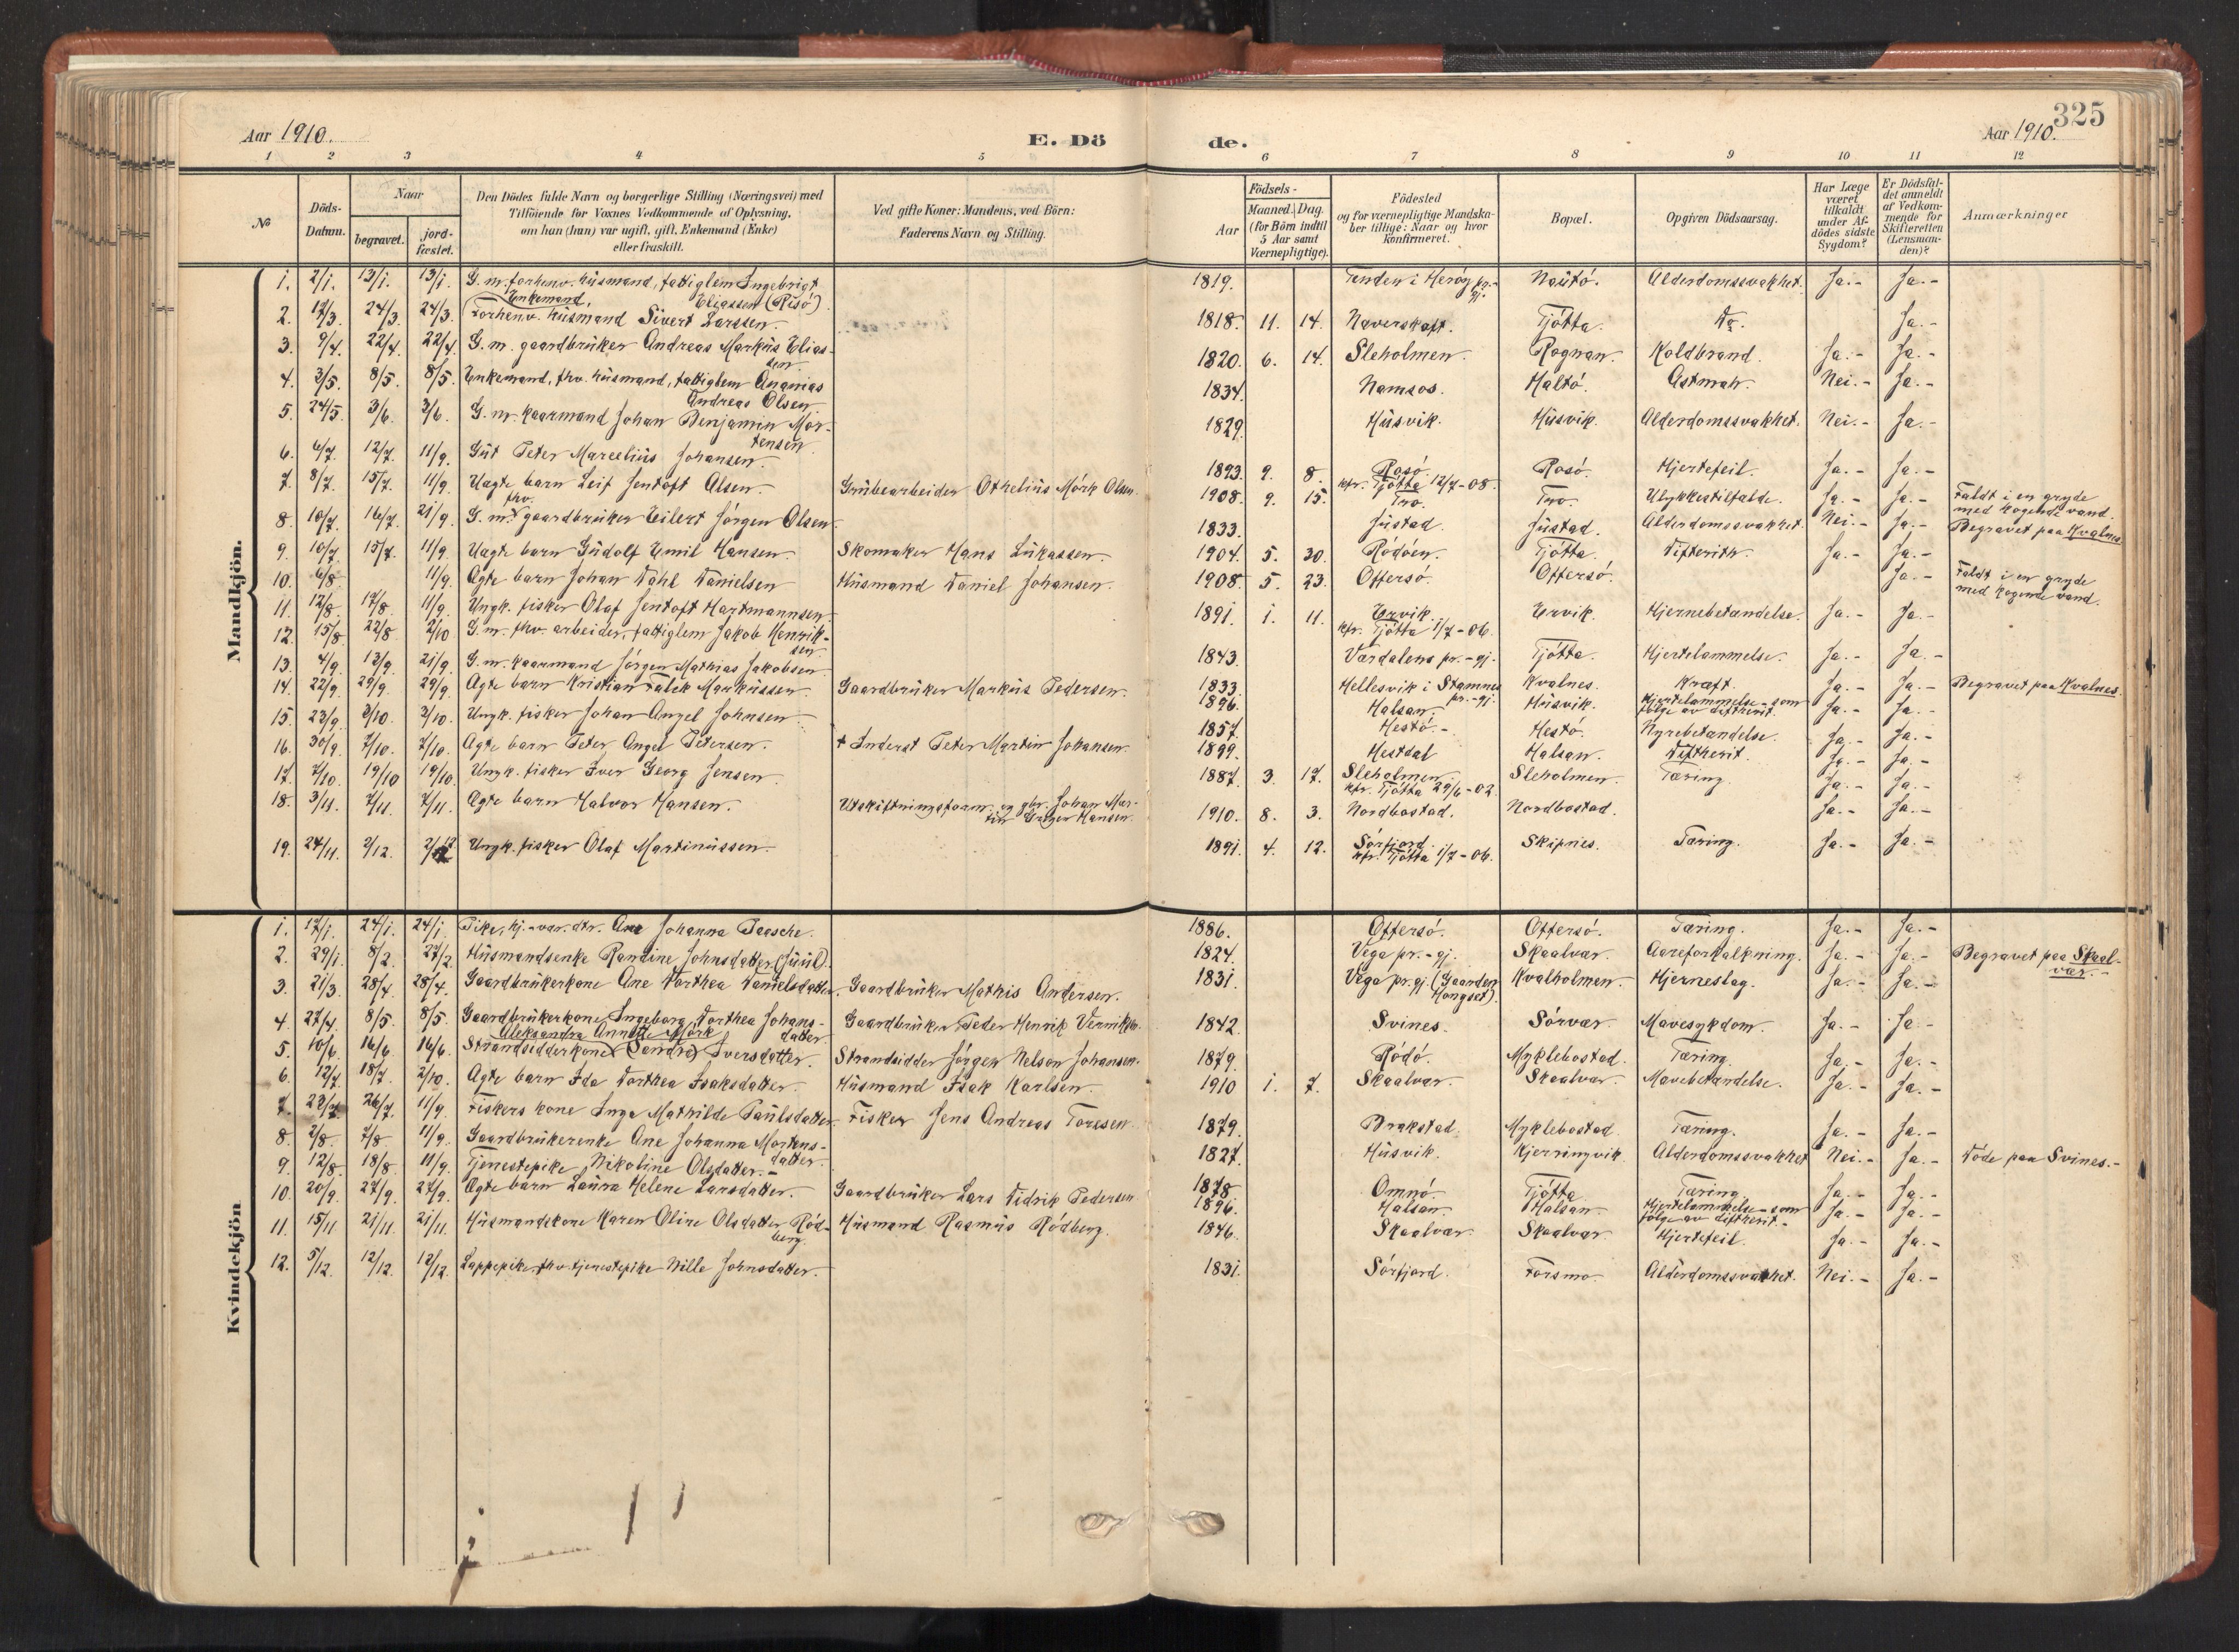 325
Aar 1910. E. Dö
de. Aar 1910.
1 2 3 4 5
6 7 8 9 10 11 12
№
Döds-
Datum.
Naar
begravet.
jord-
fæstet.
Den Dödes fulde Navn og borgerlige Stilling (Næringsvei) med
Tilföiende for Voxnes Vedkommende af Oplysning,
om han (hun) var ugift, gift, Enkemand (Enke)
eller fraskilt.
Ved gifte Koner: Mandens, ved Börn:
Faderens Navn og Stilling.
Födsels-
Aar
Maaned. Dag.
(for Börn indtil
5 Aar samt
Værnepligtige).
Födested
og for værnepligtige Mandska-
ber tillige: Naar og hvor
konfirmeret.
Bopæl.
Opgiven Dödsaarsag.
Har Læge
været
tilkaldt
under Af-
dödes sidste
Sygdom?
Er Dödsfal-
det anmeldt
af Vedkom-
mende for
Skifteretten
(Lensman-
den)?
Anmærkninger
Mandkjön.
1. 2/1. 13/1. 13/1. G.m. forhenv. husmand, fattiglem Ingebrigt
Eliassen (Risö)
1819. Tenden i Heröy pr.-
gj. Nautö. Alderdomssvakhet. Ja.- Ja.-
Enkemand.
2. 17/3. 24/3. 24/3. Forhenv. husmand Sivert Larssen.
1818. 11. 14. Næverskaft. Tjötta. Do. Ja.-
3. 9/4. 22/4. 22/4. G.m. gaardbruker Andreas Markus Elias-
sen.
1820. 6. 14. Sleholmen. Rognan. Koldbrand. Ja.- Ja.-
4. 3/5. 8/5. 8/5. Enkemand, fhv. husmand, fattiglem Ananias
Andreas Olsen
1834. Namsos. Haltö. Astmah. Nei.- Ja.-
5. 24/5. 3/6. 3/6. G.m. kaarmand Johan Benjamin Mor-
tensen.
1829. Husvik. Husvik. Alderdomssvakhet. Nei.- Ja.-
6. 6/7. 12/7. 11/9. Gut Peter Marcelius Johansen.
1893. 9. 8. Rosö.
kfr. Tjötta 12/7-08. Rosö. Hjertefeil. Ja.- Ja.-
7. 8/7. 15/7. 11/9. Uægte barn Leif Jentoft Olsen. Grubearbeider Othelius Mörk Olsen.
1908. 9. 15. Tro. Tro. Ulykkestilfælde. Ja.- Ja.- Faldt i en gryde
med kogende vand.
8. 10/7. 16/7. 21/9. G.m. fhv. gaardbruker Eilert Jörgen Olsen.
1833. Justad. Justad. Alderdomssvakhet. Nei.- Ja.- Begravet paa Kvalnes
9. 10/7. 15/7. 11/9. Uægte barn Gudolf Emil Hansen. Skomaker Hans Lukassen.
1904. 5. 30. Rödöen. Tjötta. Difterith. Ja.- Ja.-
10. 6/8. 11/9. Ægte barn Johan Dahl Danielsen Husmand Daniel Johansen.
1908. 5. 23. Offersö. Offersö. Ja.- Faldt i en gryde
med kogende vand.
11. 12/8. 17/8. 11/9. Ungk. fisker Olaf Jentoft Hartmannsen.
1891. 1. 11. Ervik.
kfr. Tjötta 1/7-06. Ervik. Hjernebetændelse. Ja.- Ja.-
12. 15/8. 22/8. 2/10. G.m. fhv. arbeider, fattiglem Jakob Henrik-
sen.
1843. Værdalens pr.-gj. Tjötta. Hjertelammelse. Ja.- Ja.-
13. 4/9. 13/9. 21/9. G.m. kaarmand Jörgen Mathias Jakobsen
1833. Hellesvik i Stamnes
pr.-gj. Kvalnes. Kræft. Ja.- Ja.- Begravet paa Kvalnes.
14. 22/9. 29/9. 29/9. Ægte barn Kristian Falck Markussen. Gaardbruker Markus Pedersen.
1896. Halsan. Husvik. Hjertelammelse - som
fölge av difterit. Ja.- Ja.-
15. 23/9. 3/10. 3/10. Ungk. fisker Johan Angel Johnsen.
1857. Hestö.- Hestö. Nyrebetændelse. Ja.- Ja.-
16. 30/9. 7/10. 7/10. Ægte barn Peter Angel Petersen. + Inderst Peter Martin Johansen.
1899. Hestdal Halsan. Difterit. Ja.- Ja.-
17. 7/10. 19/10 19/10. Ungk. fisker Iver Georg Jensen.
1887. 3. 17. Sleholmen.
kfr. Tjötta 29/6-02. Sleholmen. Tæring. Ja.- Ja.-
18. 3/11. 7/11. 7/11. Ægte barn Halvor Hansen. Utskiftningsform. og gbr. Johan Mar-
tin Hansen.
1910. 8. 3. Nordbostad. Nordbostad. Ja.- Ja.-
19. 24/11. 2/12. 2/12 Ungk. fisker Olaf Martinussen.
1891. 4. 12. Sörfjord.
kfr. Tjötta 1/7-06. Skipnes. Tæring. Ja.- Ja.-
Kvindekjön
1. 17/1. 24/1. 24/1. Pike, hj.-vær. dtr. Ane Johanna Paasche.
1886. Offersö. Offersö. Tæring. Ja.- Ja.-
2. 29/1. 8/2. 27/2. Husmandsenke Randine Johnsdatter (Juul).
1824. Vega pr.-gj. Skaalvær. Aareforkalkning. Ja.- Ja.- Begravet paa Skaal-
vær.-
3. 21/3. 28/4. 28/4. Gaardbrukerkone Ane Dorthea Danielsdatter. Gaardbruker Mathis Andersen.
1831. Vega pr.gj. (Gaarden
Hongset). Kvalholmen. Hjerneslag. Ja.- Ja.-
4. 27/4. 8/5. 8/5. Gaardbrukerkone Ingeborg Dorthea Johans-
datter. Gaardbruker Peder Henrik
1842. Svines. Sörvær. Mavesykdom. Ja.- Ja.-
Aleksandra Annette Mörk
5. 10/6. 16/6. 16/6. Strandsidderkone (Sandra) Iversdatter. Strandsidder Jörgen Nelson Johansen.
1879. Rödö. Myklebostad. Tæring. Ja.- Ja.-
6. 12/7. 18/7. 2/10. Ægte barn Ida Dorthea Isaksdatter. Husmand Isak Karlsen.
1910 1. 7. Skaalvær. Skaalvær. Mavebetændelse. Ja.- Ja.-
7. 22/7. 26/7. 11/9. Fiskers kone Inga Mathilde Paulsdatter. Fisker Jens Andreas Toresen.
1879. Brakstad. Myklebostad. Tæring. Ja.- Ja.-
8. 2/8. 7/8. 11/9. Gaardbrukerenke Ane Johanna Mortens-
datter.
1827. Husvik. Kjerringvik. Alderdomssvakhet Nei.- Ja.- Döde paa Svines.-
9. 12/8. 18/8. 11/9. Tjenestepike Nikoline Olsdatter.-
1878 Omnö. Tjötta. Tæring. Ja.- Ja.-
10. 20/9. 27/9. 27/9. Ægte barn Laura Helene Larsdatter. Gaardbruker Lars Didrik Pedersen
1896. Halsan. Halsan. Hjertelammelse - som
fölge av difterit.- Ja.- Ja.-
11. 15/11 21/11. 21/11. Husmandskone Karen Oline Olsdatter Röd-
berg. Husmand Rasmus Rödberg.
1846. Skaalvær. Skaalvær. Hjertefeil. Ja.- Ja.-
12. 5/12. 12/12. 12/12. Lappepike, fhv. tjenestepike Nille Johnsdatter.
1831. Sörfjord. Forsmo. Alderdomssvakhet. Nei.- Ja.-